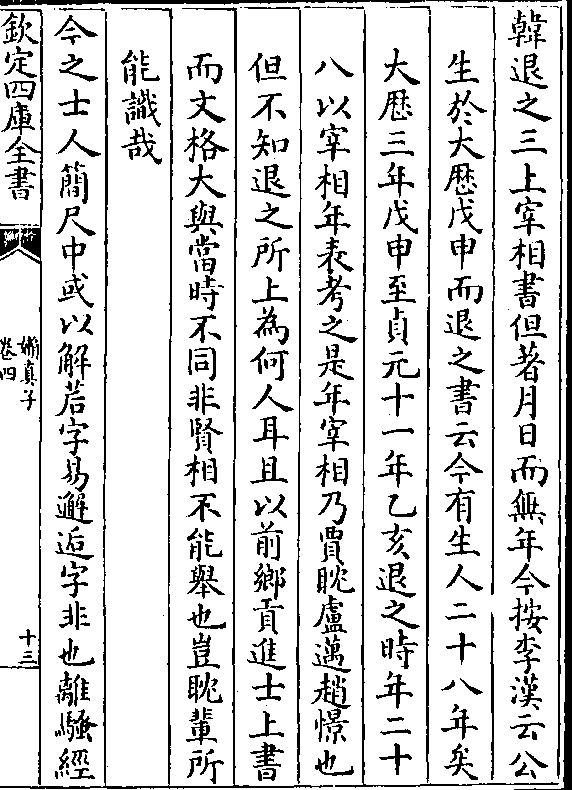 韓退之三上宰相書但著月日而無年今按李漢云公
生於大歴戊申而退之書云今有生人二十八年矣
大歴三年戊申至貞元十一年乙亥退之時年二十
八以宰相年表考之是年宰相乃賈耽盧邁趙憬也
但不知退之所上為何人耳且以前鄉貢進士上書
而文格大與當時不同非賢相不能舉也豈耽輩所
能識哉
今之士人簡尺中或以解后字易邂逅字非也離騷經
欽定四庫全書
嬾真子
卷四
十三